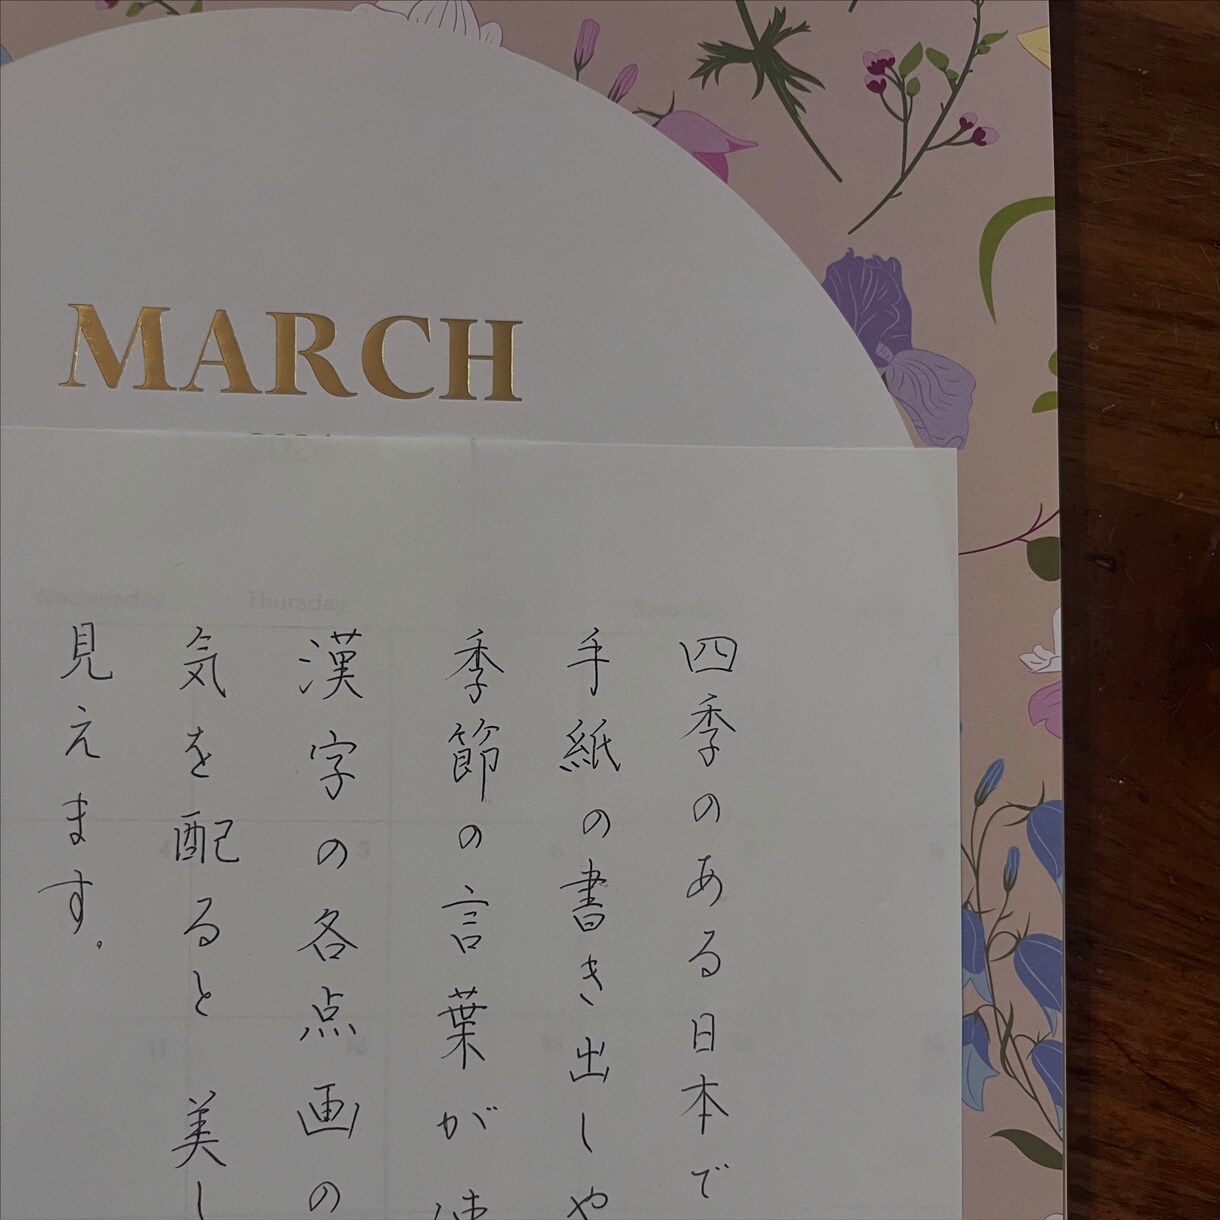 MARCH
Thursday
四季のある日本で
手紙の書き出しや
季節の言葉が
漢字の各点画の
気を配ると美し
見えます。